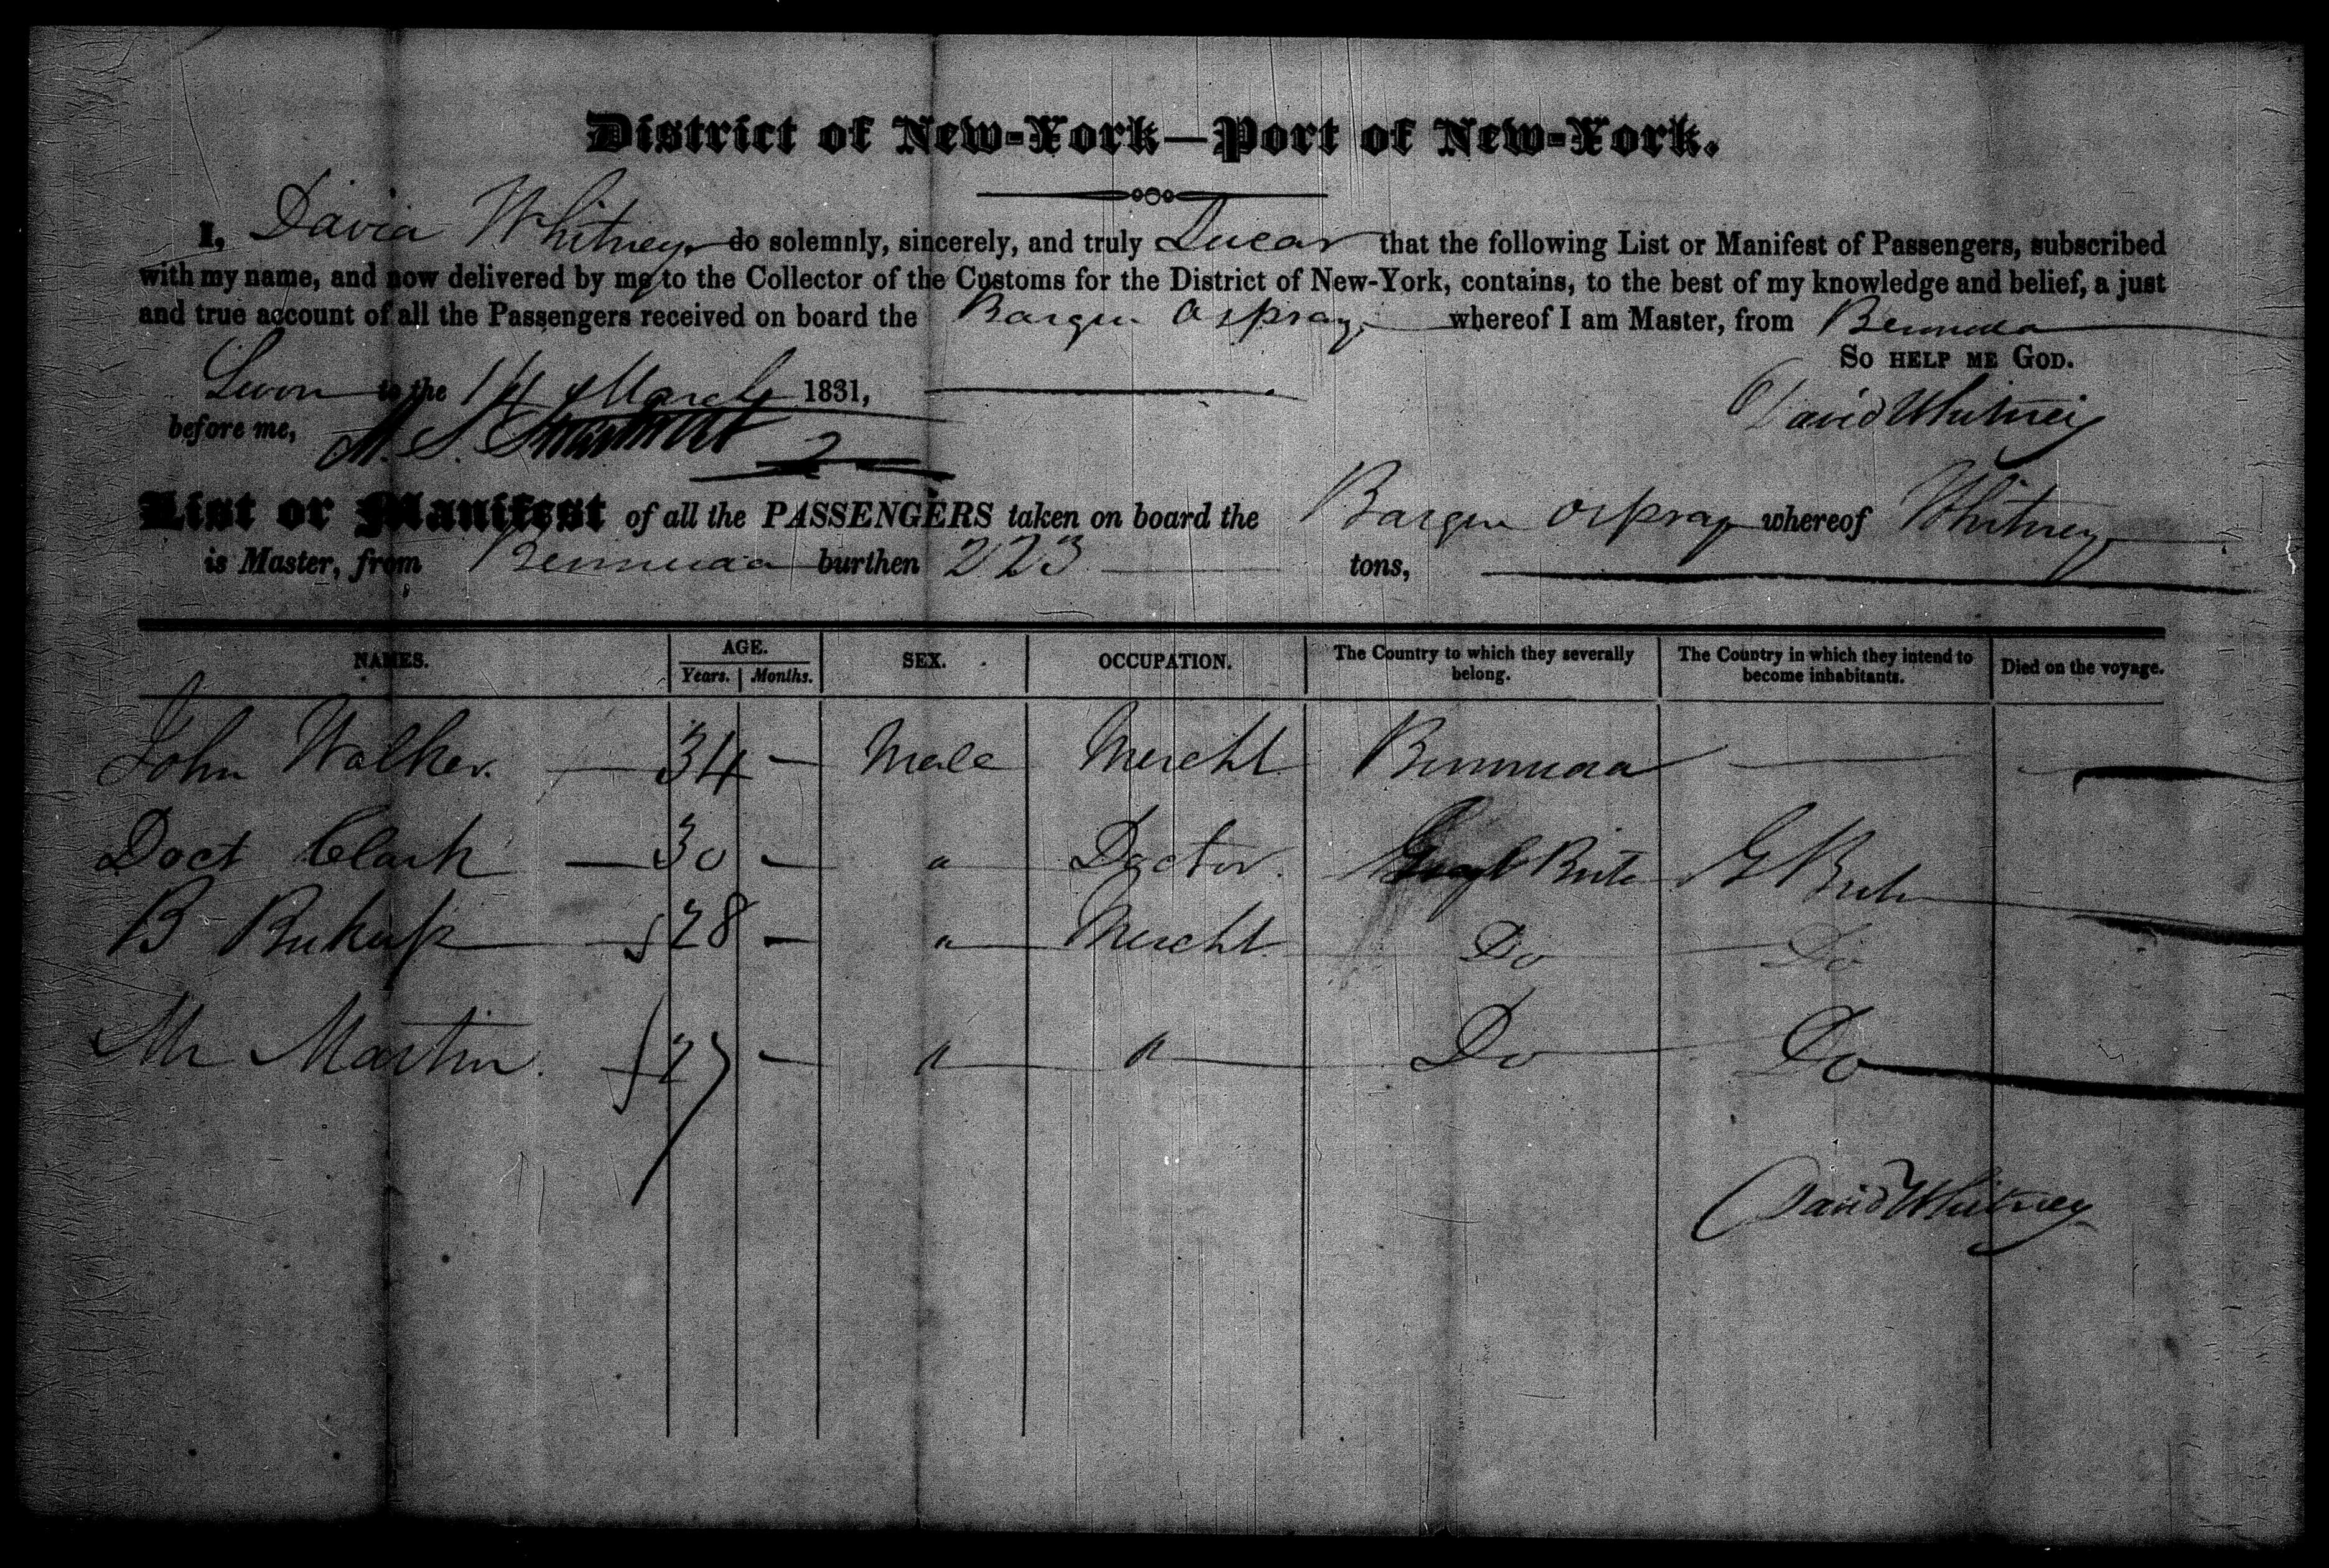 District of New-York—Port of New-York.
I, David Whitney do solemnly, sincerely, and truly Swear that the following List or Manifest of Passengers, subscribed
with my name, and now delivered by me to the Collector of the Customs for the District of New-York, contains, to the best of my knowledge and belief, a just
and true account of all the Passengers received on board the Barque Ospray whereof I am Master, from Bermuda
So help me God.
Sworn to the 14 March 1831,
David Whitney
before me, M. S.
List or Manifest of all the PASSENGERS taken on board the Barque Ospray whereof Whitney
is Master, from Bermuda burthen 223 tons,
NAMES. AGE. Years. Months. SEX. OCCUPATION. The Country to which they severally belong. The Country in which they intend to become inhabitants. Died on the voyage.
John Walker. 34 — Male Mercht Bermuda —
Doct Clark 30 — " Doctor. Great Brita G Brita
B 28 — " Mercht. Do Do
Mr Martin. 27 — " " Do Do
David Whitney